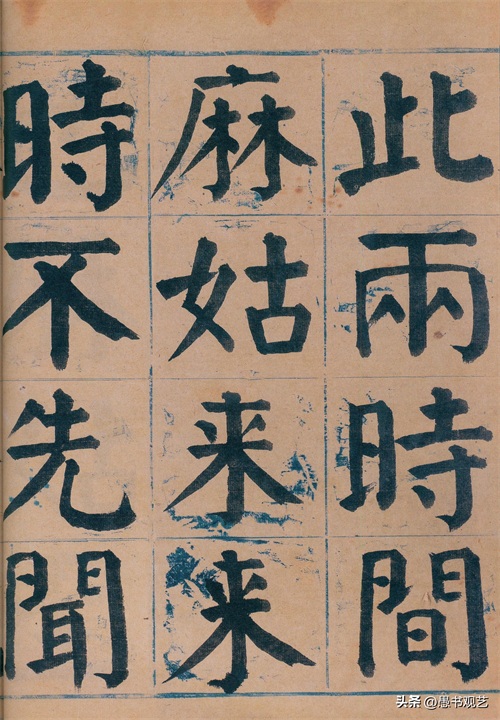 此兩時間
麻姑来来
時不先聞
头条@愚书观艺